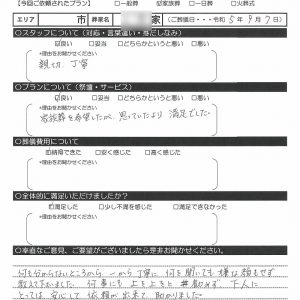 【今回ご依頼されたプラン】 □一般葬 ☑家族葬 □一日葬 □火葬式
エリア 市 葬家名 家 (ご葬儀日・・・令和5年9月7日)
○スタッフについて（対応・言葉遣い・身だしなみ）
☑良い □妥当 □どちらかというと悪い □悪い
*理由をお聞かせください。
親切、丁寧
○プランについて（祭壇・サービス）
☑良い □妥当 □どちらかというと悪い □悪い
*理由をお聞かせください。
家族葬を希望したが、思っていたより満足でした。
○葬儀費用について
☑納得できた □安く感じた □高く感じた
*理由をお聞かせください。
○全体的に満足いただけましたか？
☑満足した □少し不満を感じた □満足できなかった
*理由をお聞かせください。
○率直なご意見、ご要望がございましたら是非お聞かせください。
何も分からないところから一から丁寧に何を聞いても嫌な顔もせず
教えて下さいました。何事にも上を上をと 勧めず、下人に
とっては、安心して依頼が出来て、助かりました